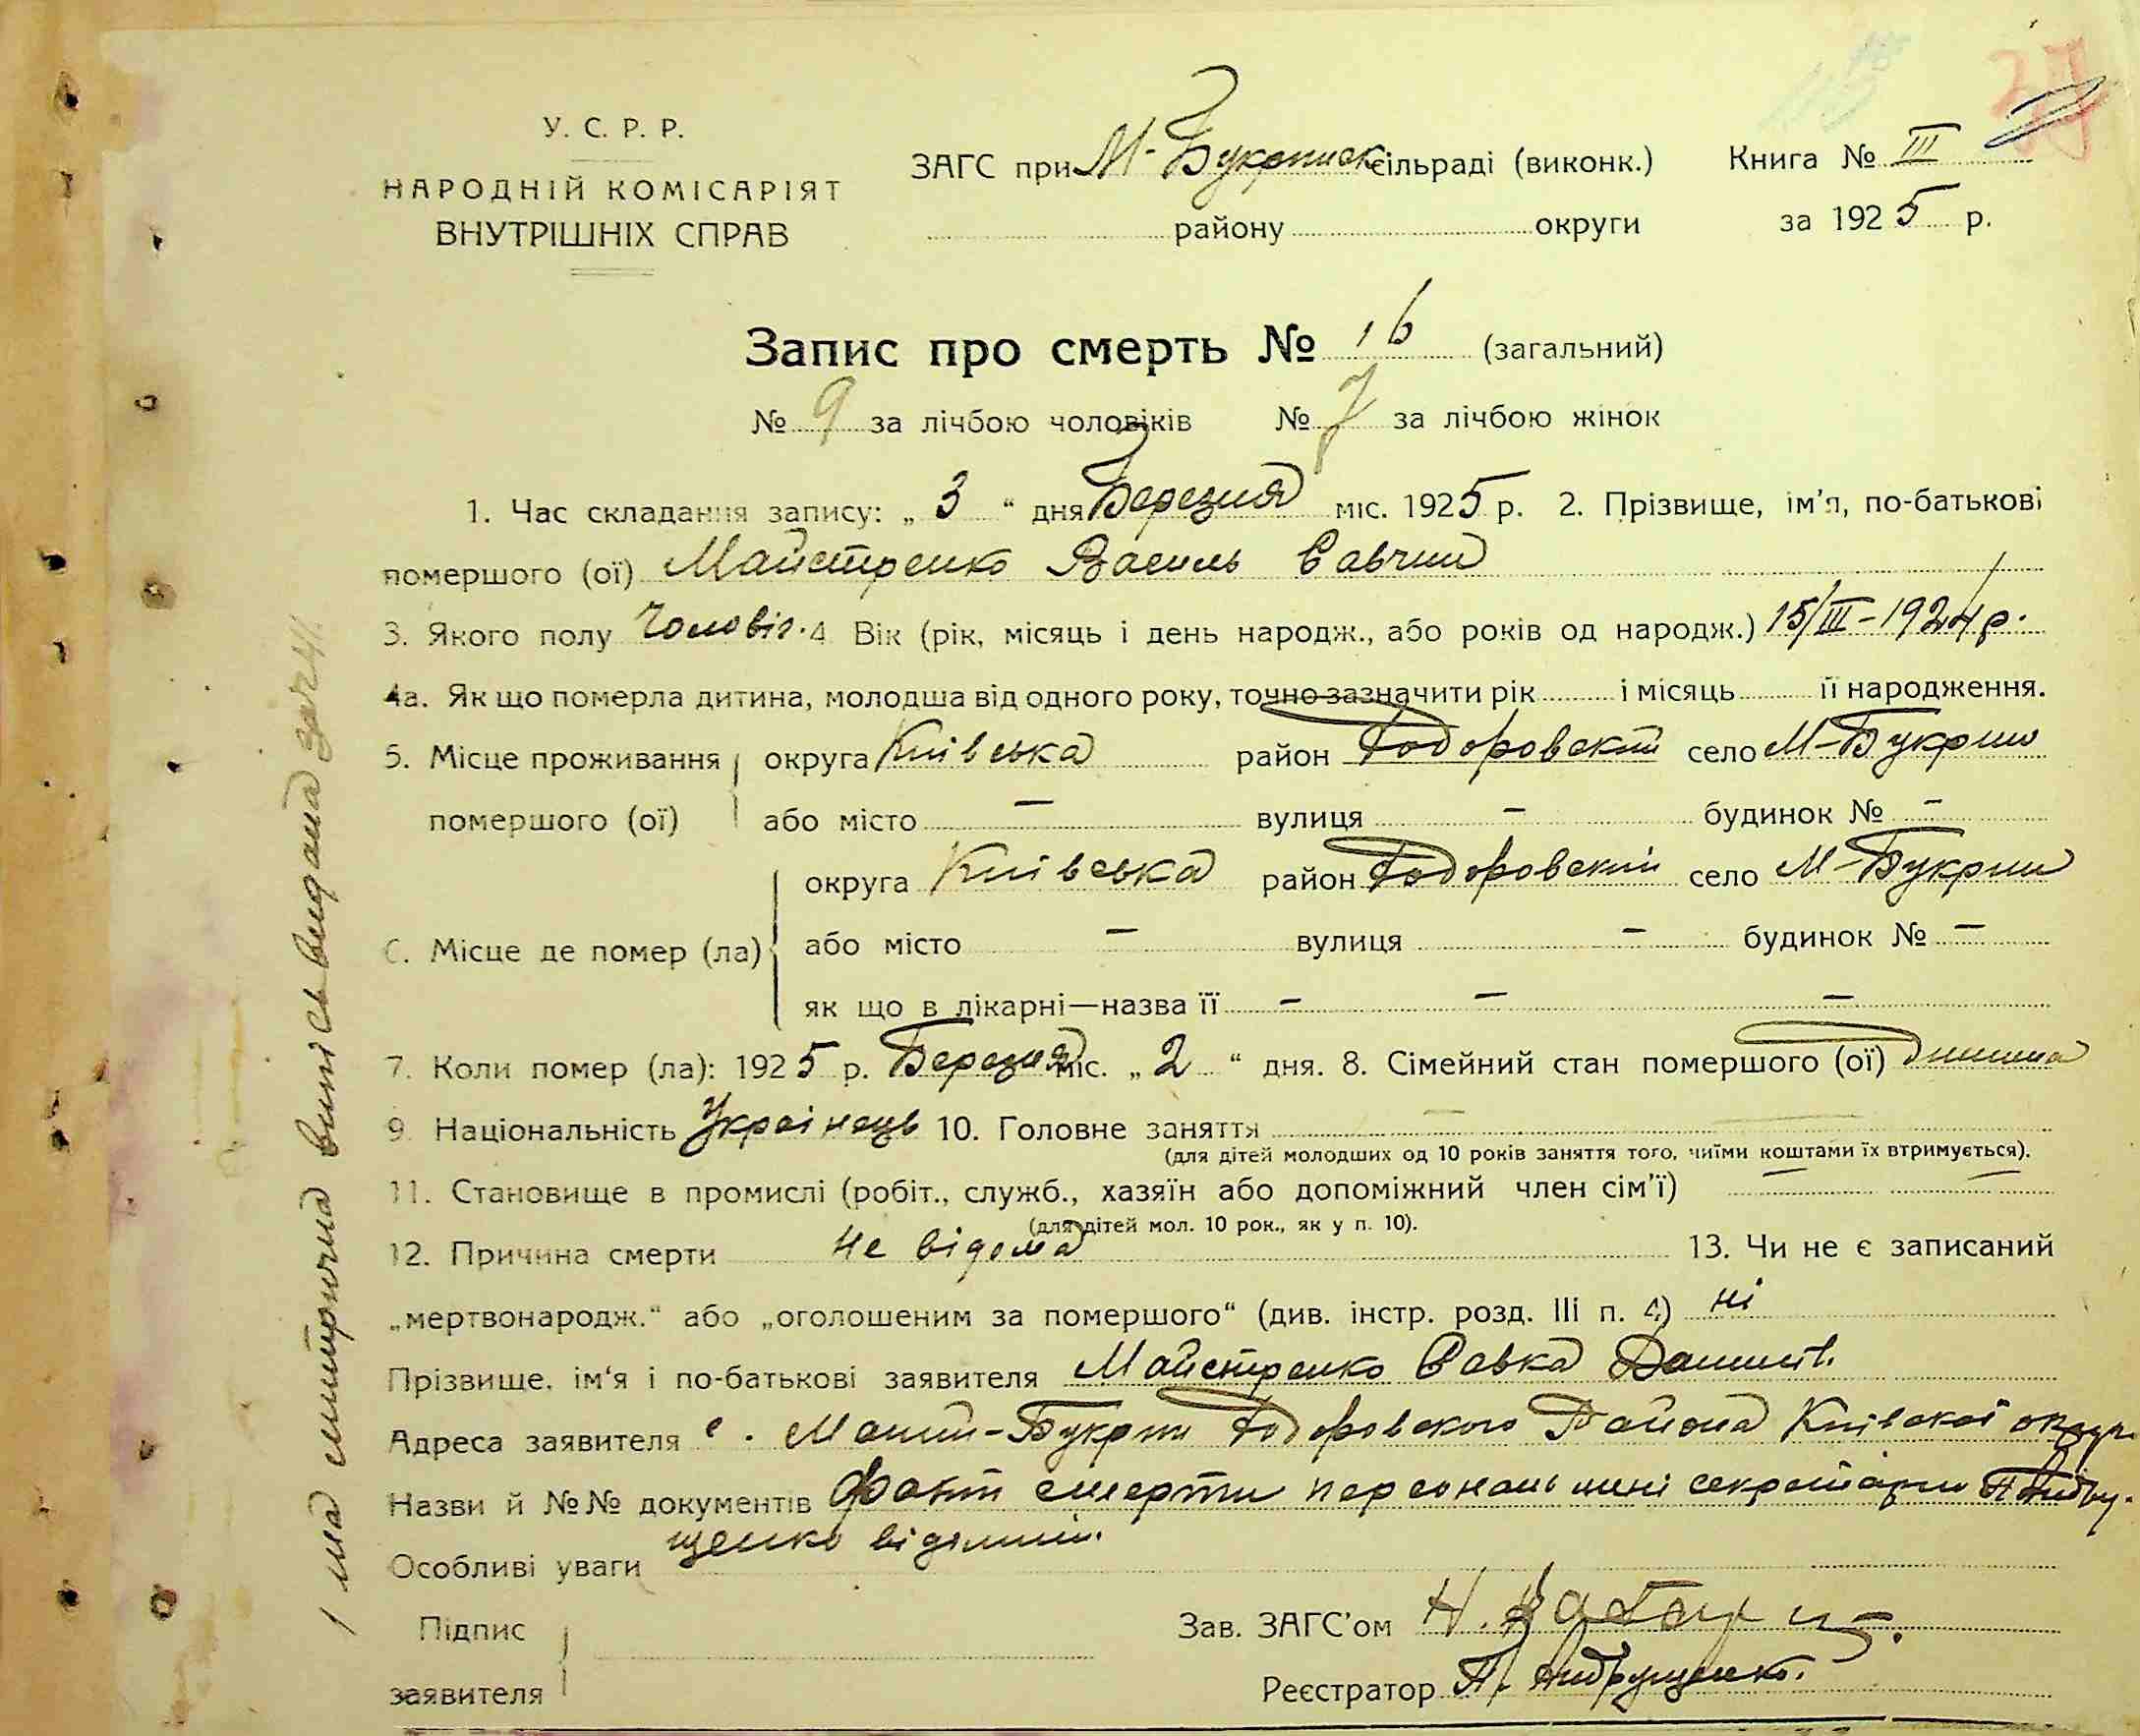 У. С. Р. Р.
НАРОДНІЙ КОМІСАРІЯТ
ВНУТРІШНІХ СПРАВ
ЗАГС при М-Букринск. сільраді (виконк.)
району округи
Книга № III
за 1925 р.
Запис про смерть № 16 (загальний)
№ 9 за лічбою чоловіків № 7 за лічбою жінок
1. Час складання запису: „ 3 “ дня Березня міс. 1925 р. 2. Прізвище, ім'я, по-батькові
помершого (ої) Майстренко Василь Савчин
3. Якого полу Чоловіч. 4 Вік (рік, місяць і день народж., або років од народж.) 15/III-1924 р.
4а. Як що померла дитина, молодша від одного року, точно зазначити рік і місяць її народження.
5. Місце проживання округа Київська район Ходоровский село М-Букрин
помершого (ої) або місто — вулиця — будинок № —
округа Київська район Ходоровский село М-Букрин
6. Місце де помер (ла) або місто — вулиця — будинок № —
як що в лікарні—назва її — — —
7. Коли помер (ла): 1925 р. Березня міс. „ 2 “ дня. 8. Сімейний стан помершого (ої) дитина
9. Національність Українець 10. Головне заняття —
(для дітей молодших од 10 років заняття того, чиїми коштами їх втримується).
11. Становище в промислі (робіт., служб., хазяїн або допоміжний член сім'ї) — —
(для дітей мол. 10 рок., як у п. 10).
12. Причина смерти не відома 13. Чи не є записаний
„мертвонародж.“ або „оголошеним за помершого“ (див. інстр. розд. III п. 4) ні
Прізвище, ім'я і по-батькові заявителя Майстренко Савка Данилів.
Адреса заявителя с. Малий-Букрин Ходоровского Района Київскої округ.
Назви й №№ документів Факт смерти персональ мені секретарю П Андру-
Особливі уваги щенко відомий.
Підпис
заявителя
Зав. ЗАГС'ом Н.
Реєстратор П. Андрущенко.
1 на метрична випісь видана